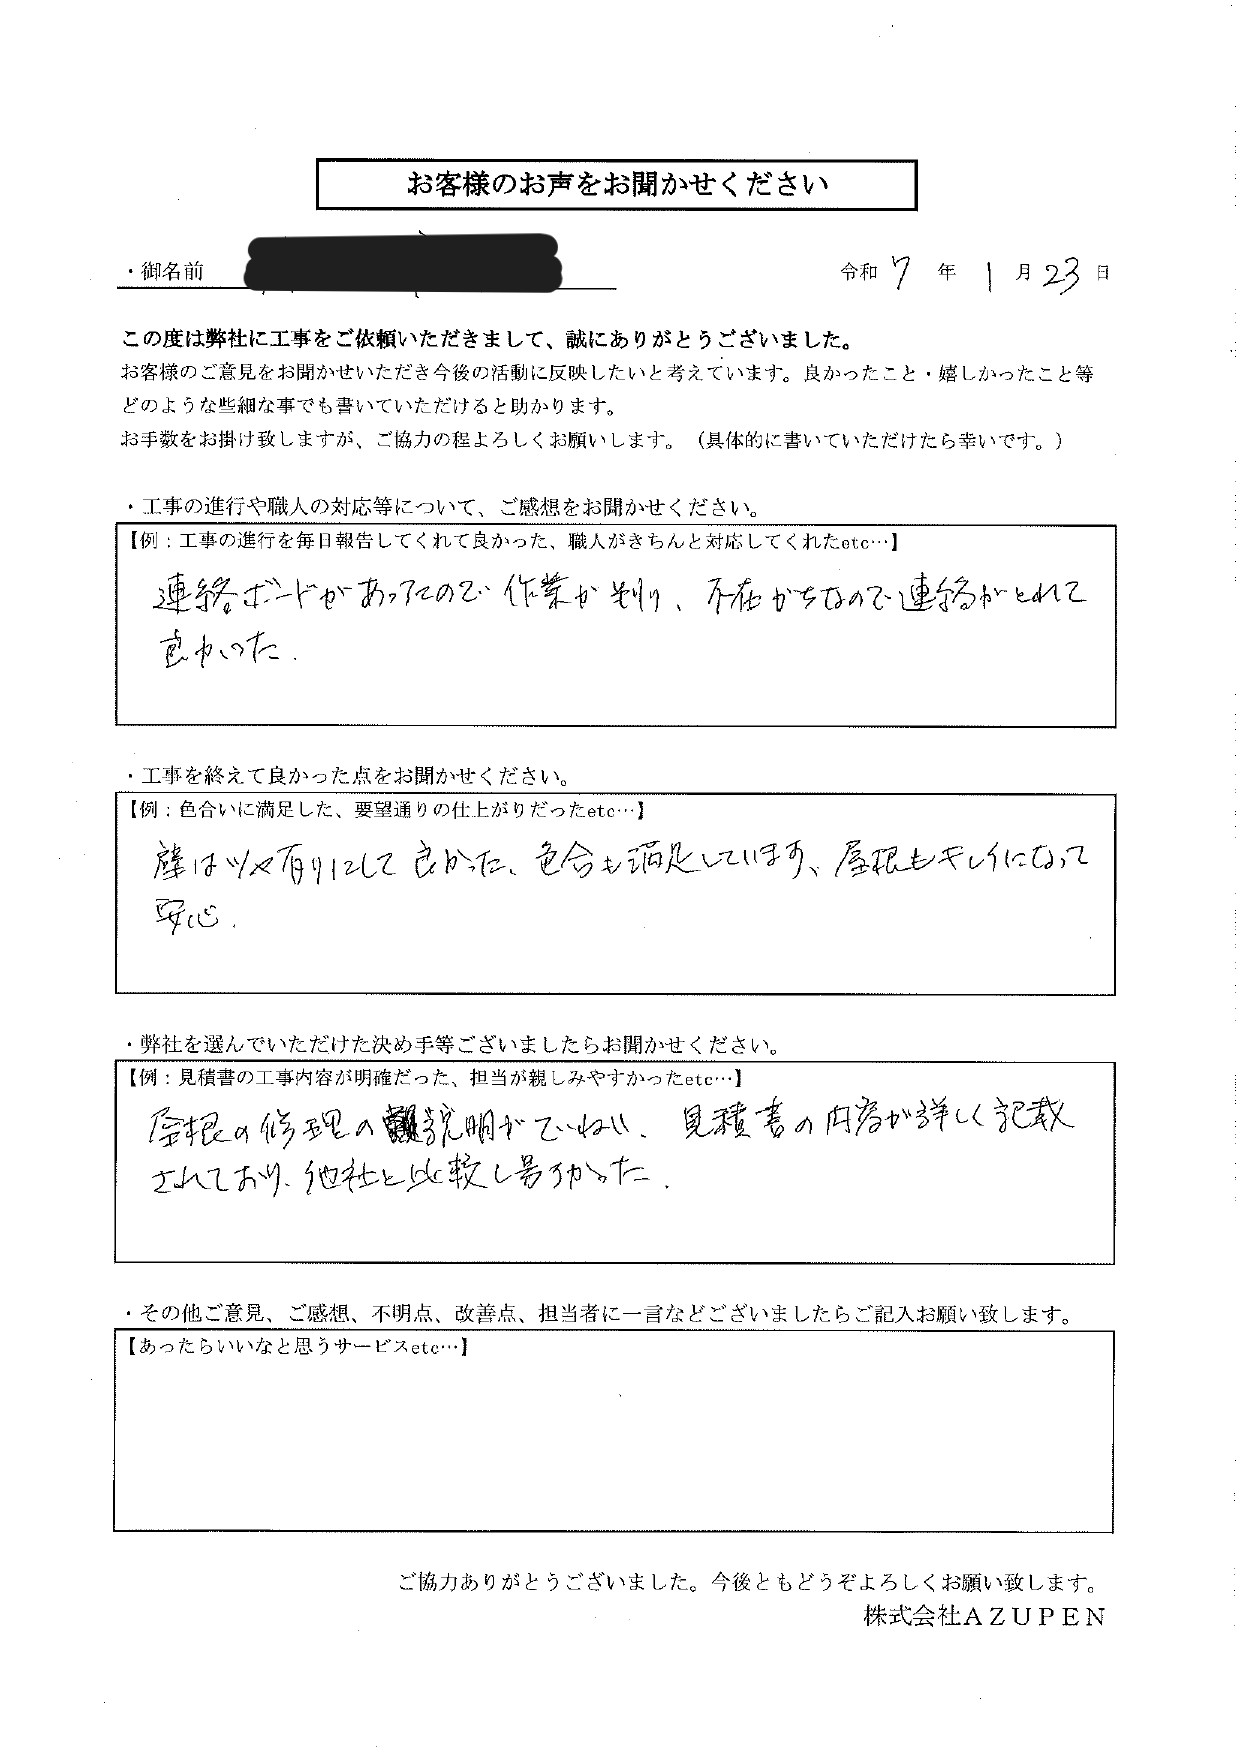 お客様のお声をお聞かせください
・御名前
令和 7 年 1 月 23 日
この度は弊社に工事をご依頼いただきまして、誠にありがとうございました。
お客様のご意見をお聞かせいただき今後の活動に反映したいと考えています。良かったこと・嬉しかったこと等
どのような些細な事でも書いていただけると助かります。
お手数をお掛け致しますが、ご協力の程よろしくお願いします。（具体的に書いていただけたら幸いです。）
・工事の進行や職人の対応等について、ご感想をお聞かせください。
【例：工事の進行を毎日報告してくれて良かった、職人がきちんと対応してくれたetc…】
連絡ボードがあったので作業が判り、不在がちなので連絡がとれて
良かった.
・工事を終えて良かった点をお聞かせください。
【例：色合いに満足した、要望通りの仕上がりだったetc…】
壁はツヤ有りにして良かった、色合も満足しています、屋根もキレイになって
安心.
・弊社を選んでいただけた決め手等ございましたらお聞かせください。
【例：見積書の工事内容が明確だった、担当が親しみやすかったetc…】
屋根の修理の説明がていねい、見積書の内容が詳しく記載
されており、他社と比較し易かった.
・その他ご意見、ご感想、不明点、改善点、担当者に一言などございましたらご記入お願い致します。
【あったらいいなと思うサービスetc…】
ご協力ありがとうございました。今後ともどうぞよろしくお願い致します。
株式会社AZUPEN